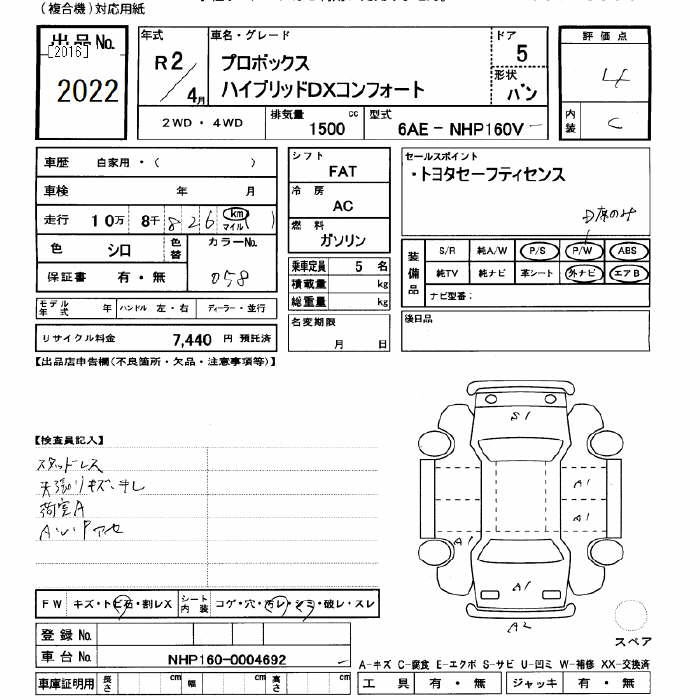 (複合機)対応用紙
出品No.
[2016]
2022
年式
R2/4月
車名・グレード
プロボックス
ハイブリッドDXコンフォート
ドア
5
形状
バン
評価点
4
内装
C
2WD・4WD
排気量
1500 cc
型式
6AE－NHP160V
車歴 自家用・( )
車検 年 月
走行 10万 8千 826 (km マイル)
色 シロ
色替
カラーNo.
058
保証書 有・無
シフト
FAT
冷房
AC
燃料
ガソリン
乗車定員 5 名
積載量 kg
総重量 kg
名変期限
月 日
セールスポイント
・トヨタセーフティセンス
装備品
S/R 純A/W P/S P/W ABS
純TV 純ナビ 革シート 外ナビ エアB
ナビ型番:
後日品
モデル年式 年 ハンドル 左・右 ディーラー・並行
リサイクル料金 7,440 円 預託済
【出品店申告欄(不良箇所・欠品・注意事項等)】
【検査員記入】
スタッドレス
荷室A
S1
A1
A1
A1
A1
A2
スペア
FW キズ・トビ石・割レX
シート内装 コゲ・穴・汚レ・シミ・破レ・スレ
登録No.
車台No. NHP160-0004692
車庫証明用 長さ cm 幅 cm 高さ cm
A-キズ C-腐食 E-エクボ S-サビ U-凹ミ W-補修 XX-交換済
工具 有・無 ジャッキ 有・無